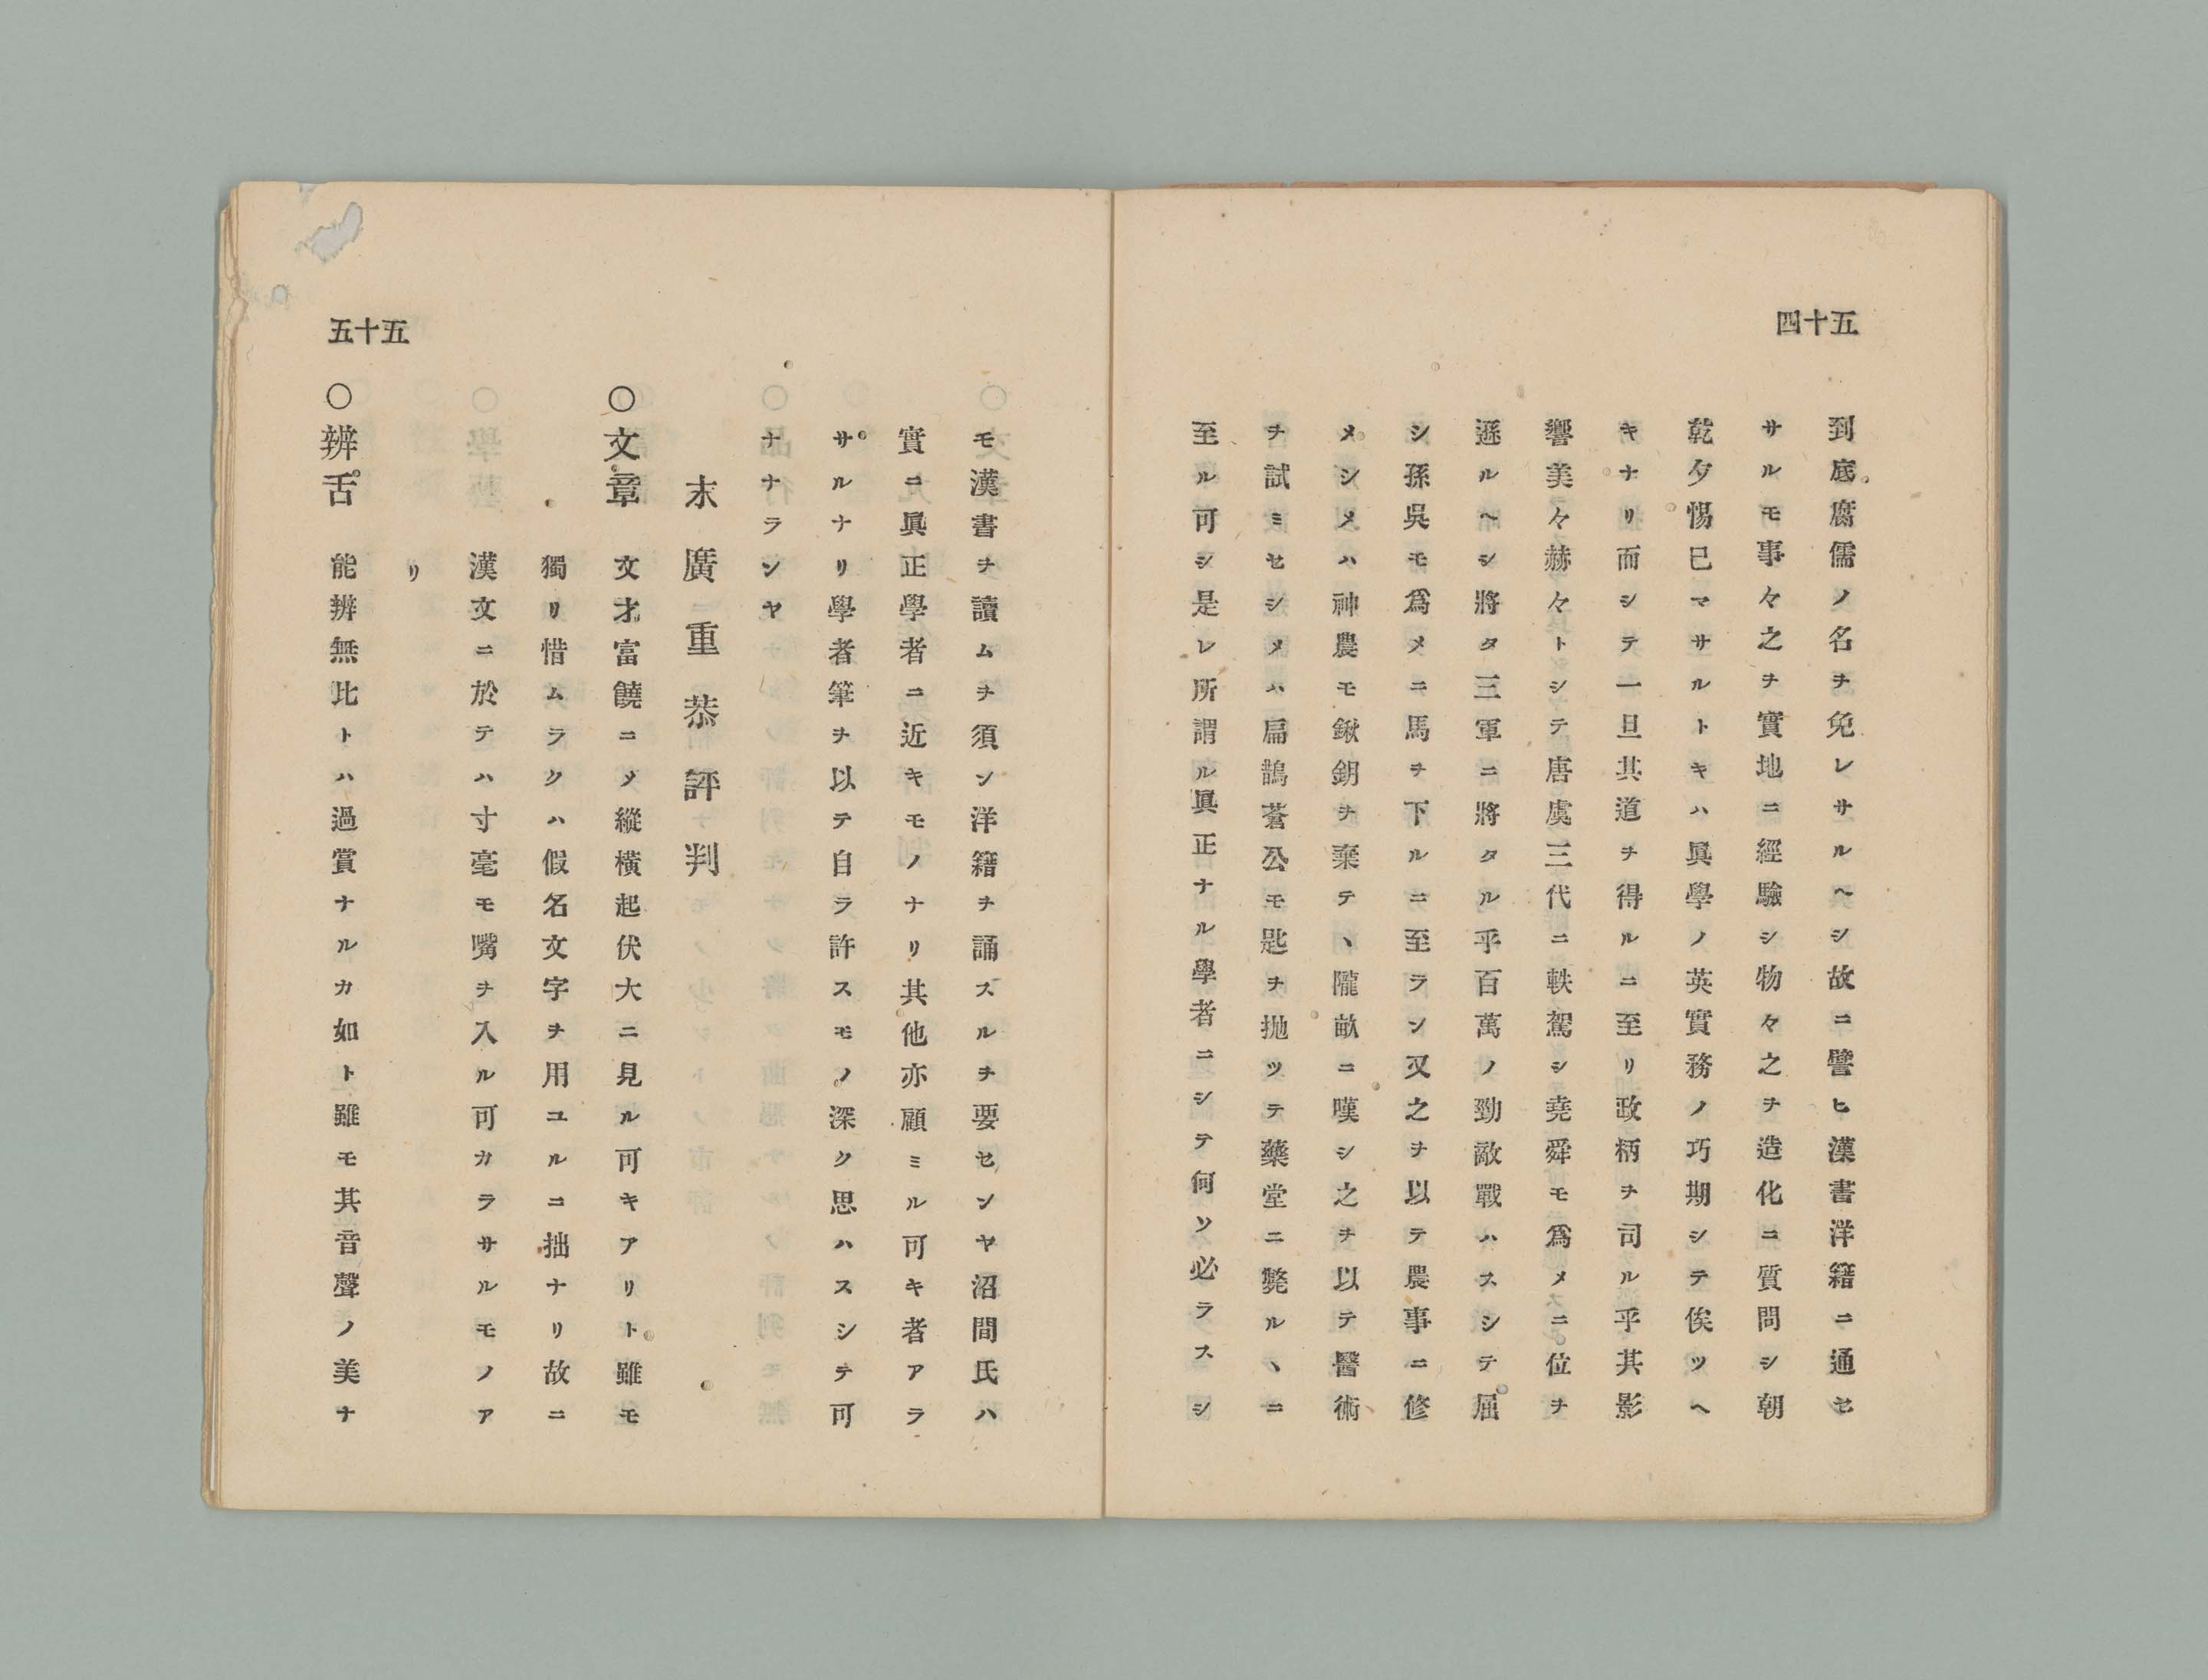 四十五
到底腐儒ノ名ヲ免レサルヘシ故ニ譬ヒ漢書洋籍ニ通セ
サルモ事々之ヲ實地ニ經驗シ物々之ヲ造化ニ質問シ朝
乾夕惕已マサルトキハ眞學ノ英實務ノ巧期シテ俟ツヘ
キナリ而シテ一旦其道ヲ得ルニ至リ政柄ヲ司ル乎其影
響美々赫々トシテ唐虞三代ニ軼駕シ堯舜モ爲メニ位ヲ
遜ルヘシ將タ三軍ニ將タル乎百萬ノ勁敵戰ハスシテ屈
シ孫吳モ爲メニ馬ヲ下ルニ至ラン又之ヲ以テ農事ニ修
メシメハ神農モ鍬鋤ヲ棄テヽ隴畝ニ嘆シ之ヲ以テ醫術
ヲ試ミセシメハ扁鵲蒼公モ匙ヲ抛ツテ藥堂ニ斃ルヽニ
至ル可シ是レ所謂ル眞正ナル學者ニシテ何ソ必ラスシ
五十五
モ漢書ヲ讀ムヲ須ン洋籍ヲ誦スルヲ要センヤ沼間氏ハ
實ニ眞正學者ニ近キモノナリ其他亦顧ミル可キ者アラ
サルナリ學者筆ヲ以テ自ラ許スモノ深ク思ハスシテ可
ナナラシヤ
末廣重恭評判
○文章 文才富饒ニメ縱橫起伏大ニ見ル可キアリト雖モ
獨リ惜ムラクハ假名文字ヲ用ユルコ拙ナリ故ニ
漢文ニ於テハ寸毫モ嘴ヲ入ル可カラサルモノア
リ
○辨舌 能辨無比トハ過賞ナルカ如ト雖モ其音聲ノ美ナ